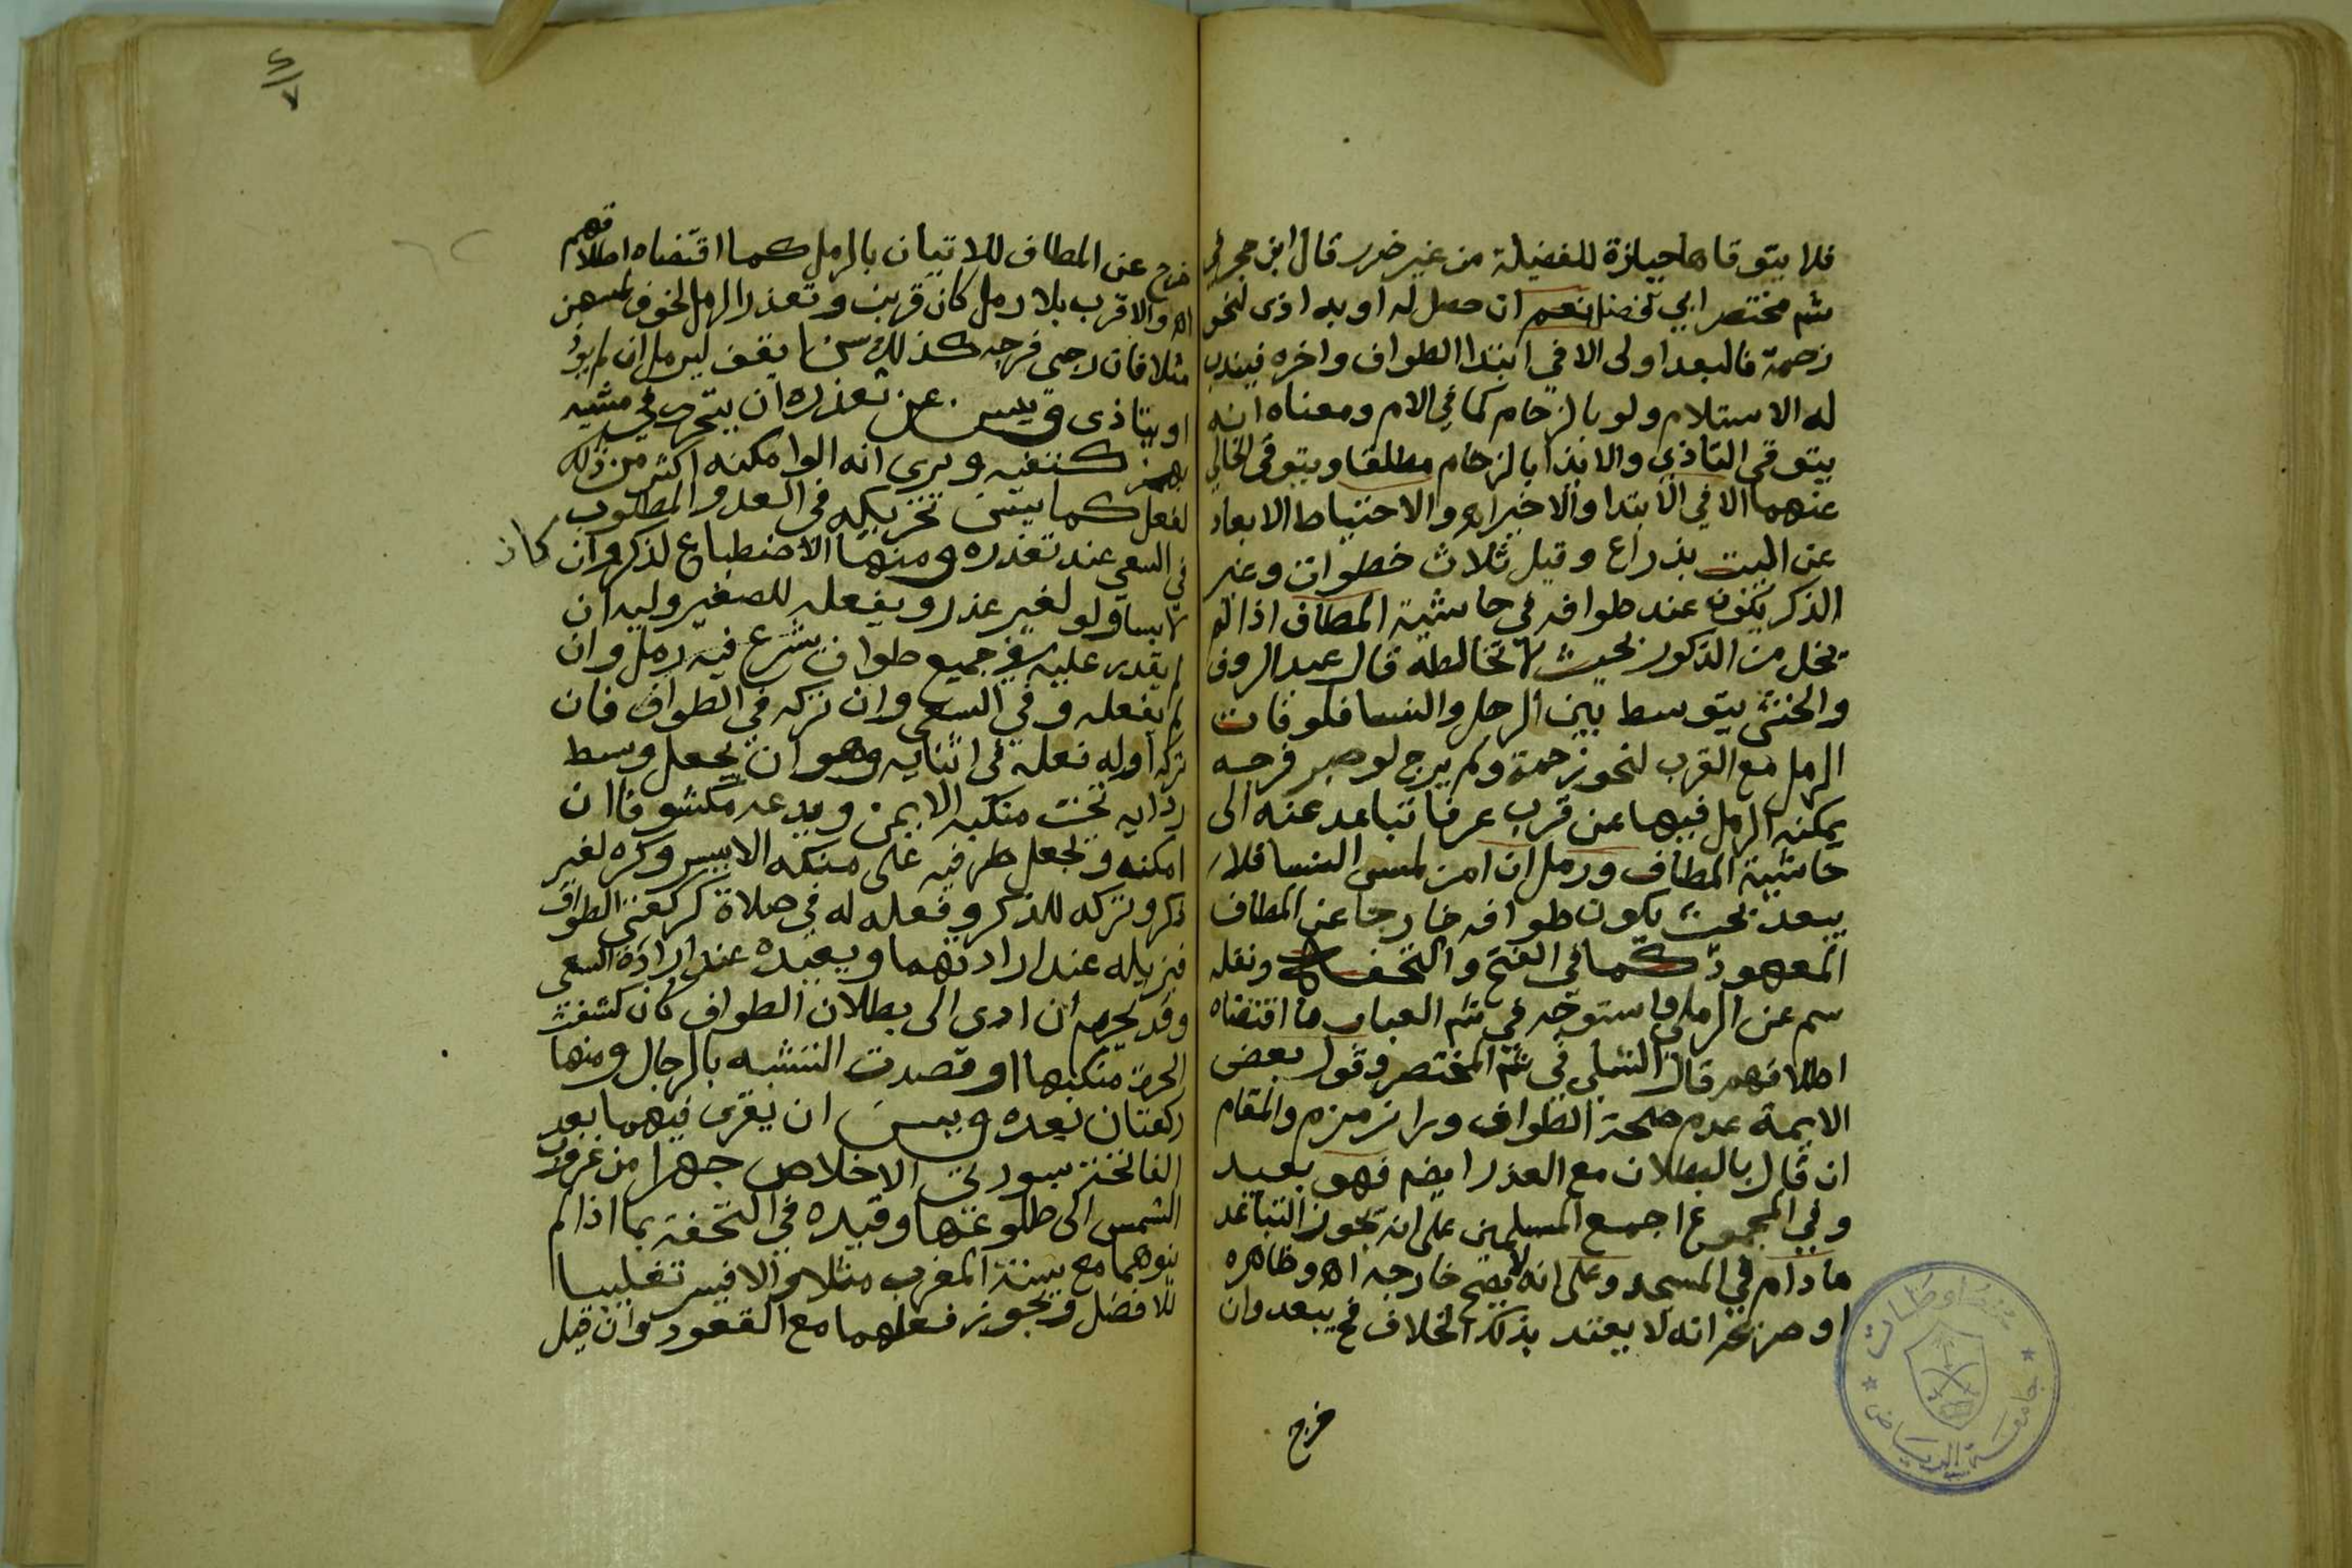 فلا يتوقاها حيازة للفضيلة من غير ضرر قال ابن حجر في
شم مختصر ابي فضل نعم ان حصل له او به اذى لنحو
زحمة فالبعد اولى الا في ابتدا الطواف واخره فيندب
له الاستلام ولو بالزحام كما في الام ومعناه انه
يتوقى التاذي والايذا بالزحام مطلقا ويتوقى الخالي
عنهما الا في الابتدا والاخير اه والاحتياط الابعاد
عن البيت بذراع وقيل ثلاث خطوات وغير
الذكر يكون عند طوافه في حاشية المطاف اذا لم
يخل من الذكور بحيث لا تخالطه قال عبد الروف
والخنثى يتوسط بين الرجل والنسا فلو فات
الرمل مع القرب لنحو زحمة ولم يرج لو صبر فرجه
يمكنه الرمل فيها عن قرب عرفا تباعد عنه الى
حاشية المطاف ورمل ان امن لمس النسا فلا
يبعد بحيث يكون طوافه خارجا عن المطاف
المعهود كما في الفتح والتحفة ونقله
سم عن الرملي واستوجه في شم العباب ما اقتضاه
اطلاقهم قال الشلي في شم المختصر وقول بعض
الايمة عدم صحة الطواف ورا زمزم والمقام
ان قال بالبطلان مع العذر ايضم فهو بعيد
وفي المجموع اجمع المسلمين على انه يجوز التباعد
ما دام في المسجد وعلى انه لا يصح خارجه اه وظاهره
او صريحه انه لا يعتد بذلك الخلاف فح يبعد وان
خرج
خرج عن المطاف للاتيان بالرمل كما اقتضاه اطلاقهم
اه والاقرب بلا رمل كان قرب وتعذر الرمل لخوف لمسهن
مثلا فان رجى فرجه كذلك سن ان يقف ليرمل ان لم يوذ
او يتاذى ويسن عن تعذره ان يتحرك في مشيه
بهز كتفيه ويرى انه لو امكنه اكثر من ذلك
لفعل كما يسن تحريكه في العدو المطلوب
في السعي عند تعذره ومنها الاضطباع لذكر وان كان
لابسا ولو لغير عذر ويفعله للصغير وليه ان
لم يقدر عليه في جميع طواف يشرع فيه رمل وان
لم يفعله وفي السعي وان تركه في الطواف فان
تركه اوله فعله في اثنايه وهو ان يجعل وسط
ردايه تحت منكبه الايمن ويدعه مكشوفا ان
امكنه ويجعل طرفيه على منكبه الايسر وكره لغير
ذكر وتركه للذكر وفعله له في صلاة كركعتي الطواف
فيزيله عند ارادتهما ويعيده عند ارادة السعي
وقد يحرم ان ادى الى بطلان الطواف كان كشفت
الحرة منكبها او قصدت التشبه بالرجال ومنها
ركعتان بعده ويسن ان يقرى فيهما بعد
الفاتحة سورتي الاخلاص جهرا من غروب
الشمس الى طلوعها وقيده في التحفة بما اذا لم
ينوهما مع سنة المغرب مثلا والا فيسر تغليبا
للافضل ويجوز فعلهما مع القعود وان قيل
جامعة الرياض